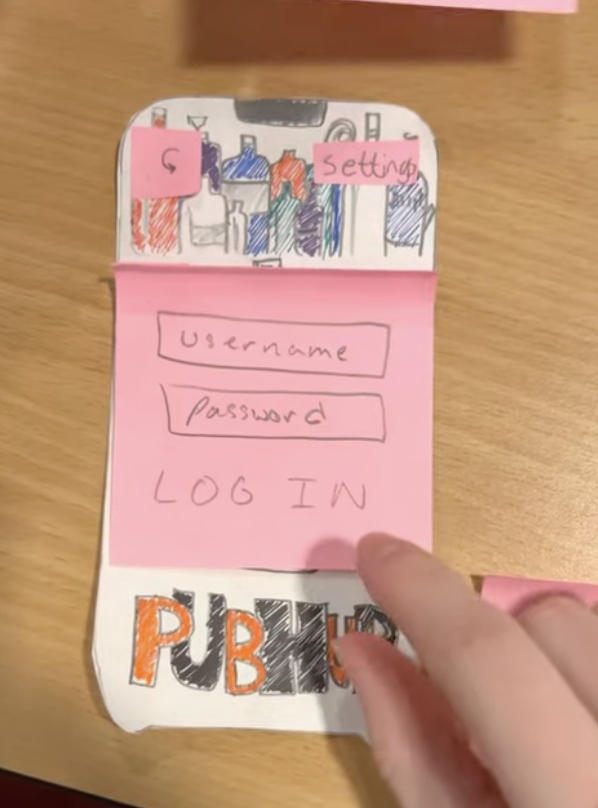 settings
username
Password
LOG IN
PUBHUB